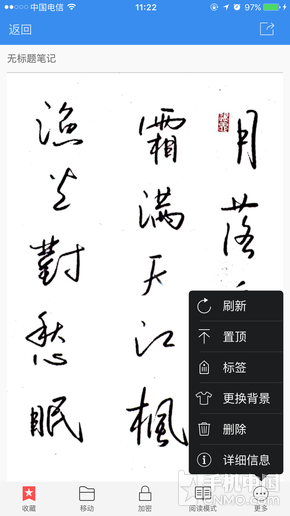 中国电信
11:22
97%
返回
无标题笔记
月落
霜滿天江楓
漁火對愁眠
刷新
置顶
标签
更换背景
删除
详细信息
收藏
移动
加密
阅读模式
更多
手机中国
CNMO.COM